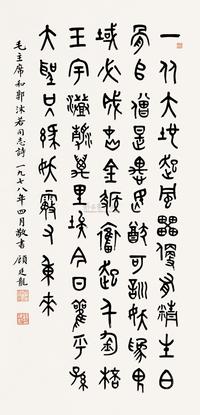 一从大地起風雷便有精生白
骨𠂤僧是愚氓猷可訓妖為鬼
蜮必成灾金猴奮起千鈞棓
玉宇澂清萬里埃今日驩乎孫
大聖只緣妖霧又重來
毛主席和郭沫若同志詩一九七八年四月敬書 顧廷龍